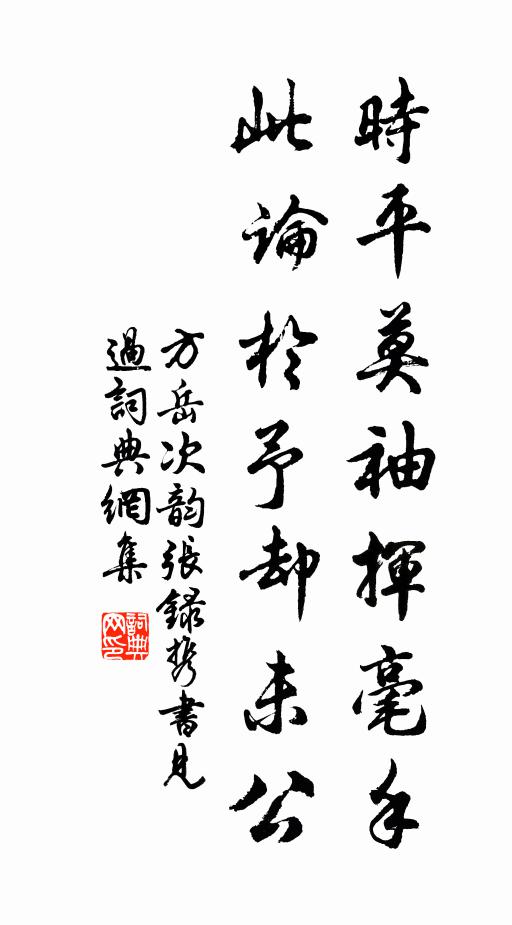 時平莫袖揮毫手
此論於予却未公
方岳次韵張録携書見
過詞典網集
詞典网印